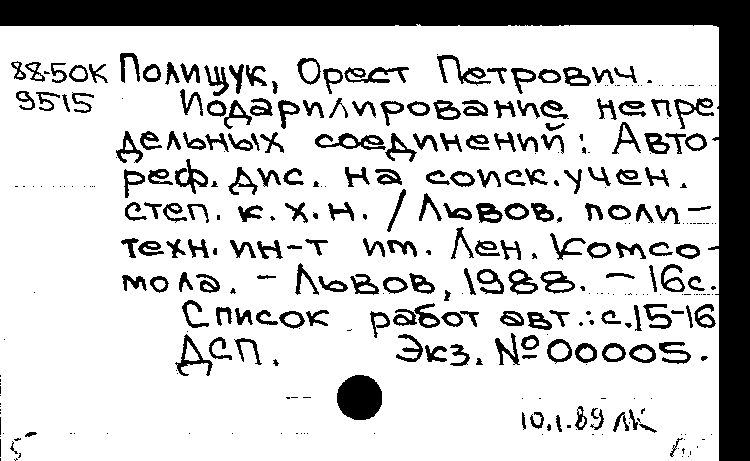 88-50К Полищук, Орест Петрович.
9515 Иодарилирование непре-
дельных соединений: Авто-
реф. дис. на соиск. учен.
степ. к. х. н. / Львов. поли-
техн. ин-т им. Лен. Комсо-
мола. - Львов, 1988. - 16с.
Список работ авт.: с.15-16
ДСП. Экз. № 00005.
10.1.89 ЛК
5